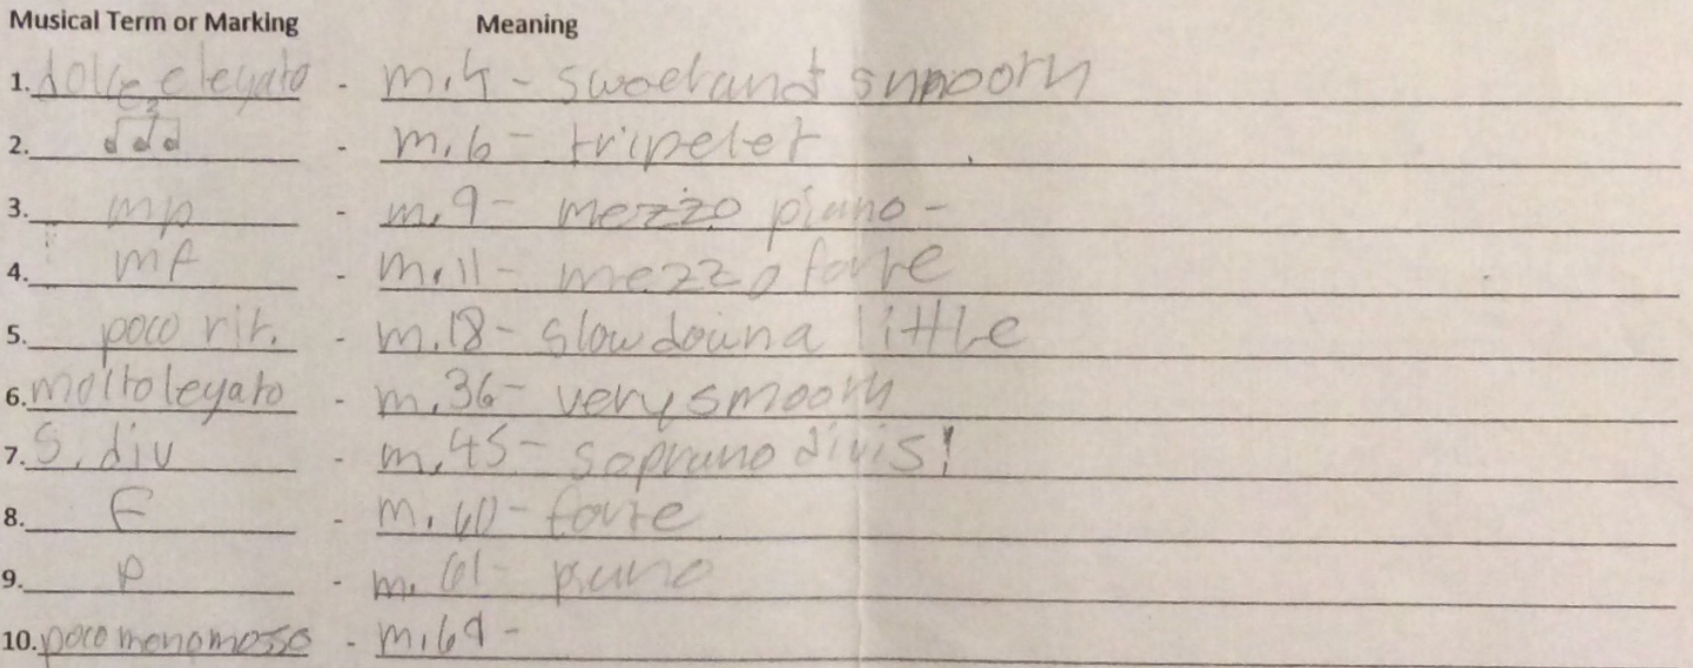 Musical Term or Marking Meaning
1. dolce e legato - m.4 - sweet and smooth
2. 3 - m.6 - tripelet
3. mp - m.9 - mezzo piano -
4. mf - m.11 - mezzo forte
5. poco rit. - m.18 - slow down a little
6. molto legato - m.36 - very smooth
7. S. div - m.45 - soprano divisi
8. F - m.60 - forte
9. P - m.61 - piano
10. poco meno mosso - m.69 -